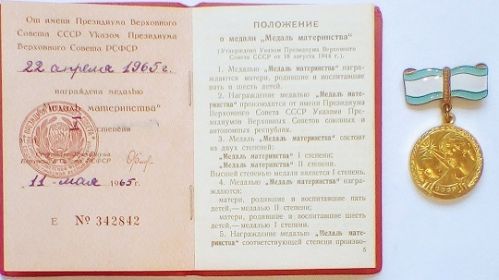 От имени Президиума Верховного
Совета СССР Указом Президиума
Верховного Совета РСФСР
22 апреля 1965 г.
награждена медалью
"Медаль материнства"
степени
11 мая 1965 г.
Е № 342842
ПОЛОЖЕНИЕ
о медали „Медаль материнства"
(Утверждено Указом Президиума Верховного
Совета СССР от 18 августа 1944 г.)
1. Медалью „Медаль материнства"
награждаются матери, родившие и воспитавшие
пять и шесть детей.
2. Награждение медалью „Медаль мате-
ринства" производится от имени Президиума
Верховного Совета СССР Указами Прези-
диумов Верховных Советов союзных и
автономных республик.
3. „Медаль материнства" состоит
из двух степеней:
„Медаль материнства" I степени;
„Медаль материнства" II степени.
Высшей степенью медали является I степень.
4. Медалью „Медаль материнства" наг-
раждаются:
матери, родившие и воспитавшие пять
детей,—медалью II степени;
матери, родившие и воспитавшие шесть
детей,—медалью I степени.
5. Награждение медалью „Медаль мате-
ринства" соответствующей степени произво-
5
СССР